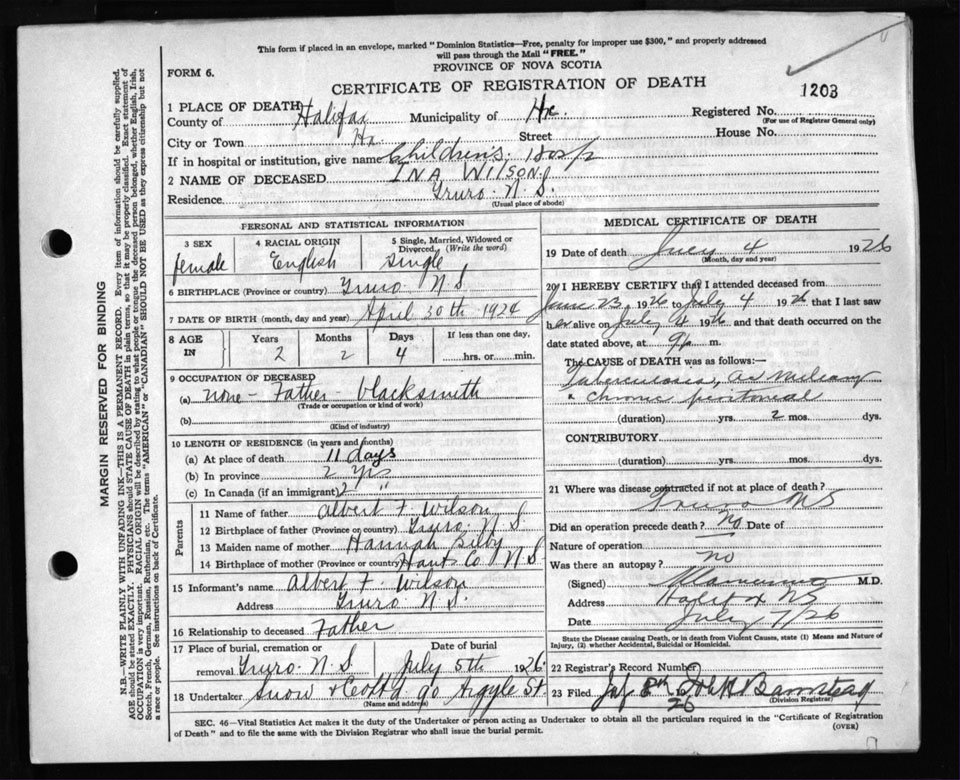 This form if placed in an envelope, marked "Dominion Statistics—Free, penalty for improper use $300," and properly addressed
will pass through the Mail "FREE."
PROVINCE OF NOVA SCOTIA
FORM 6.
CERTIFICATE OF REGISTRATION OF DEATH
1203
1 PLACE OF DEATH
County of Halifax Municipality of Hx. Registered No.
(For use of Registrar General only)
City or Town Hx Street House No.
If in hospital or institution, give name Children's Hosp
2 NAME OF DECEASED INA WILSON
Residence Truro N.S.
(Usual place of abode)
PERSONAL AND STATISTICAL INFORMATION
3 SEX 4 RACIAL ORIGIN 5 Single, Married, Widowed or
Divorced (Write the word)
female English single
6 BIRTHPLACE (Province or country) Truro N.S.
7 DATE OF BIRTH (month, day and year) April 30th 1924
8 AGE IN Years Months Days If less than one day,
2 2 4 hrs. or min.
9 OCCUPATION OF DECEASED
(a) none - Father - blacksmith
(Trade or occupation or kind of work)
(b)
(Kind of industry)
10 LENGTH OF RESIDENCE (in years and months)
(a) At place of death 11 days
(b) In province 2 yrs
(c) In Canada (if an immigrant) 2 "
Parents
11 Name of father Albert F. Wilson
12 Birthplace of father (Province or country) Truro N.S.
13 Maiden name of mother Hannah
14 Birthplace of mother (Province or country) Hants Co N S
15 Informant's name Albert F. Wilson
Address Truro N.S.
16 Relationship to deceased Father
17 Place of burial, cremation or Date of burial
removal Truro N.S. July 5th 1926
18 Undertaker Snow & Co Ltd 90 Argyle St.
(Name and address)
MEDICAL CERTIFICATE OF DEATH
19 Date of death July 4 1926
(Month, day and year)
20 I HEREBY CERTIFY that I attended deceased from
June 23 1926 to July 4 1926 that I last saw
her alive on July 4 1926 and that death occurred on the
date stated above, at 9 p. m.
The CAUSE OF DEATH was as follows:
Tuberculosis,
& chronic peritoneal
(duration) yrs. 2 mos. dys.
CONTRIBUTORY
(duration) yrs. mos. dys.
21 Where was disease contracted if not at place of death?
Truro NS
Did an operation precede death? No Date of
Nature of operation
Was there an autopsy? no
(Signed) M.D.
Address Halifax NS
Date July 7/26
State the Disease causing Death, or in death from Violent Causes, state (1) Means and Nature of
Injury, (2) whether Accidental, Suicidal or Homicidal.
22 Registrar's Record Number
23 Filed 8th 1926 Barnstead
(Division Registrar)
SEC. 46—Vital Statistics Act makes it the duty of the Undertaker or person acting as Undertaker to obtain all the particulars required in the "Certificate of Registration
of Death" and to file the same with the Division Registrar who shall issue the burial permit.
(OVER)
MARGIN RESERVED FOR BINDING
N.B.—WRITE PLAINLY WITH UNFADING INK—THIS IS A PERMANENT RECORD. Every item of information should be carefully supplied.
AGE should be stated EXACTLY. PHYSICIANS should STATE CAUSE OF DEATH in plain terms, so that it may be properly classified. Exact statement of
OCCUPATION is very important. RACIAL ORIGIN will be described by stating to what people or tongue the deceased person belonged, whether English, Irish,
Scotch, French, German, Russian, Ruthenian, etc. The terms "AMERICAN" or "CANADIAN" SHOULD NOT BE USED as they express citizenship but not
a race or people. See instructions on back of Certificate.